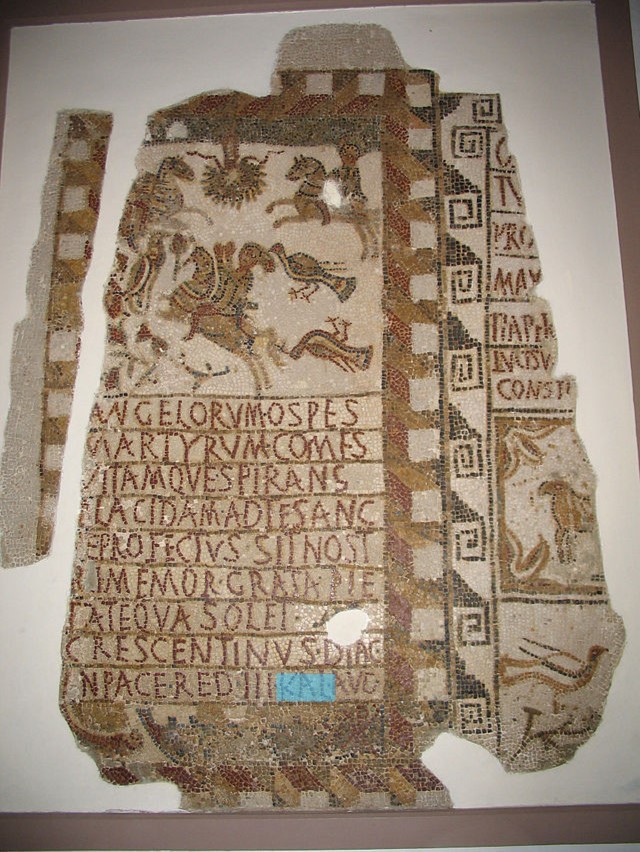 ANGELORVM OSPES
MARTYRVM·COMES
VITAMQVESPIRANS
LACIDAM·AD TE SANC
EPROFECTVS SIT NOST
RI MEMOR·GRATA PIE
TATE QVA SOLET
CRESCENTINVS·DIAC
IN PACE·RED III KAL AVG
MAV
CONST